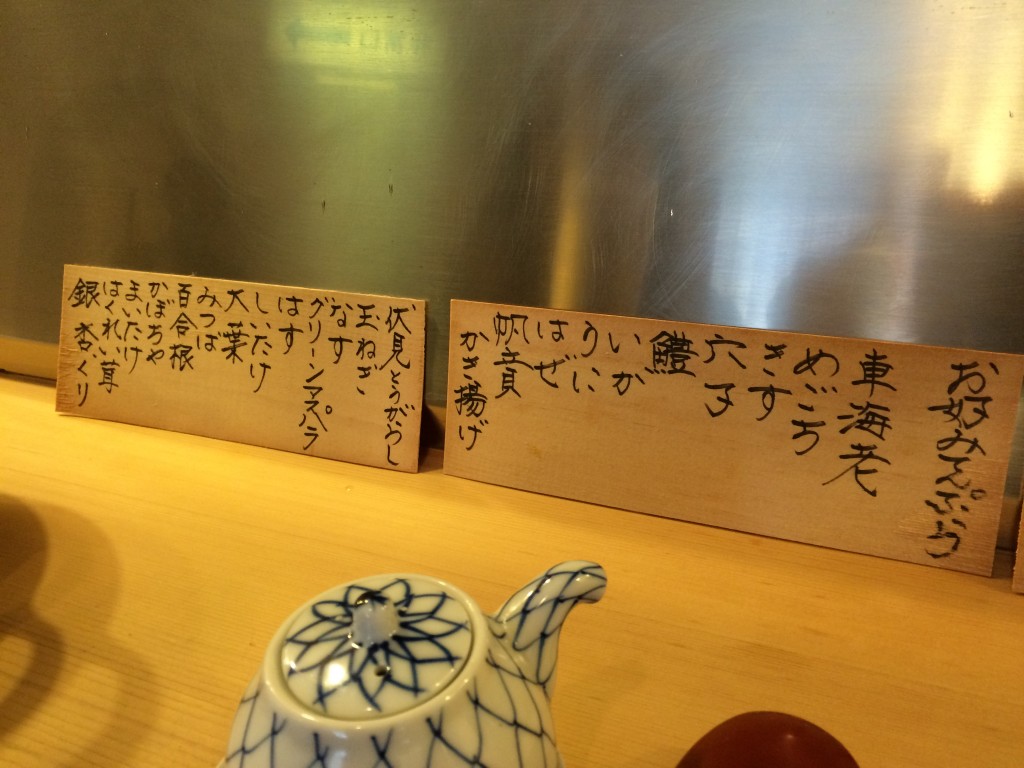 お好みてんぷら
車海老
めごち
きす
穴子
鱧
いか
うに
はぜ
帆立貝
かき揚げ
伏見とうがらし
玉ねぎ
なす
グリーンアスパラ
はす
しいたけ
大葉
みつば
百合根
かぼちゃ
まいたけ
はくれい茸
銀杏 くり